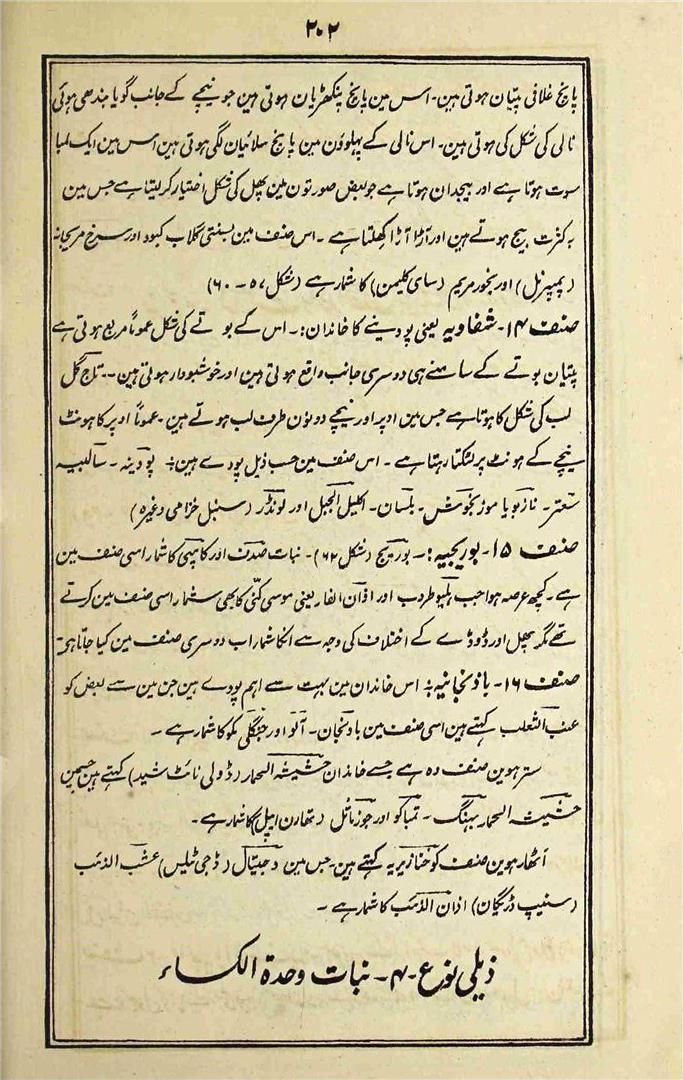 ۲۰۲
پانچ غلافی پتیان ہوتی ہین۔ اس مین پانچ پنکھڑیان ہوتی ہین جو نیچے کے جانب گویا بندھی ہوئی
نالی کی شکل کی ہوتی ہین۔ اس نالی کے پہلوؤن مین پانچ سلائیان لگی ہوتی ہین اس مین ایک لمبا
سوت ہوتا ہے اور بیجدان ہوتا ہے جو بعض صورتون مین پھل کی شکل اختیار کر لیتا ہے جس مین
بہ کثرت بیج ہوتے ہین اور آڑا آڑا کھلتا ہے۔ اس صنف مین بسنتی گلاب کبود اور سرخ مریحانہ
(پمپرنل) اور بخور مریم (سای کلیمن) کا شمار ہے (شکل ۵۷-۶۰)
صنف ۱۴- شفاویہ یعنی پودینے کا خاندان:۔ اس کے بوتے کی شکل عموماً مربع ہوتی ہے
پتیان بوتے کے سامنے ہی دوسری جانب واقع ہوتی ہین اور خوشبودار ہوتی ہین۔۔ تاج گل
لب کی شکل کا ہوتا ہے جس مین اوپر اور نیچے دونون طرف لب ہوتے ہین۔ عموماً اوپر کا ہونٹ
نیچے کے ہونٹ پر لٹکتا رہتا ہے۔ اس صنف مین حسب ذیل پودے ہین:۔ پودینہ۔ سالبیہ
سعتر۔ نازبو یا موزنجوش۔ بلسان۔ اکلیل الجبل اور لونڈر (سنبل خزامی وغیرہ)
صنف ۱۵- بوریجیہ:۔ بوریج (شکل ۶۲)۔ نبات صدف اور کامپنی کا شمار اسی صنف مین
ہے۔ کچھ عرصہ ہوا جب ہلیوطروب اور اذان الفار یعنی موسی کنی کا بھی شمار اسی صنف مین کرتے
تھے مگر پھل اور ڈوڈے کے اختلاف کی وجہ سے انکا شمار اب دوسری صنف مین کیا جاتا ہی۔
صنف ۱۶- باذنجانیہ:۔ اس خاندان مین بہت سے اہم پودے ہین جن مین سے بعض کو
عنب الثعلب کہتے ہین اسی صنف مین بادنجان۔ آلو اور جنگلی مکو کا شمار ہے۔
سترہوین صنف وہ ہے جسے خاندان حشیشۃ الحمار (ڈولی نائٹ شیڈ) کہتے ہین جسمین
حشیشۃ الحمار بہنگ۔ تمباکو اور جوز ماثل (تھارن ایپل) کا شمار ہے۔
اٹھارہوین صنف کو خنازیریہ کہتے ہین۔ جس مین دجیتال (ڈجی ٹیلیس) عشب الذئب
(سنیپ ڈریگان) اذان الذئب کا شمار ہے۔
ذیلی نوع-۴- نبات وحدۃ الکساء